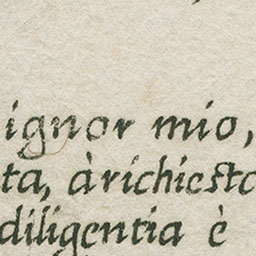 ignor mio,
ta, à richiesto
diligentia è